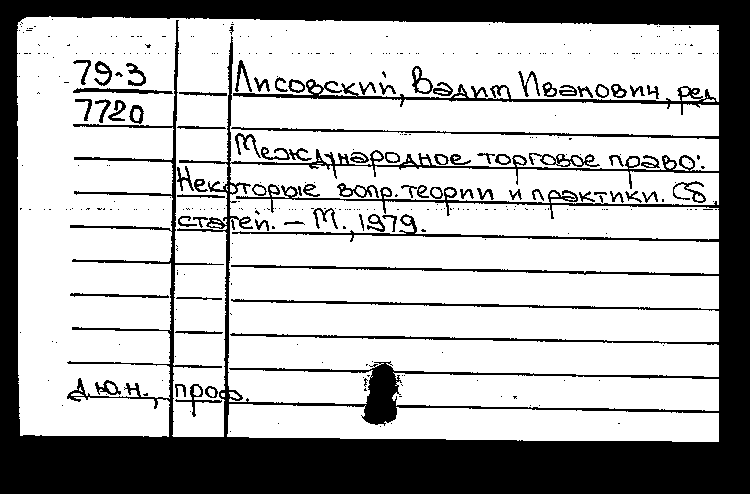 79-3 Лисовский, Вадим Иванович, ред.
7720
Международное торговое право:
Некоторые вопр. теории и практики. Сб.
статей. – М., 1979.
д.ю.н., проф.